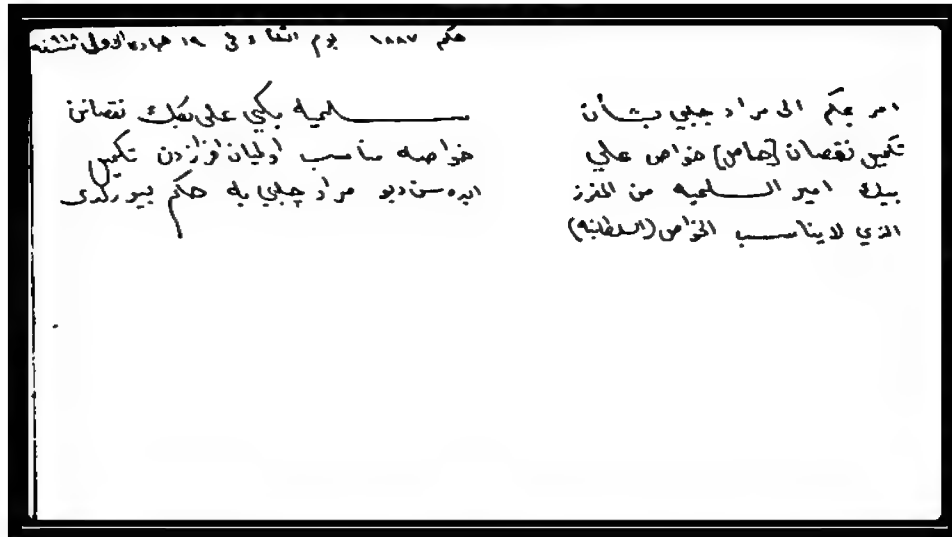 حكم ١٨٨٧ يوم في ١٩ جمادى الاولى سنة
امر بحكم الى مراد جلبي بشأن
تكميل نقصان [خاص] خواص علي
بيك امير السلميه من المفرز
الذي لايناسب الخواص (السلطانيه)
سلميه بكي علي بكك نقصانن
خواصه مناسب اولميان افرازدن تكميل
ايده سن ديو مراد چلبي يه حكم بيورلدى